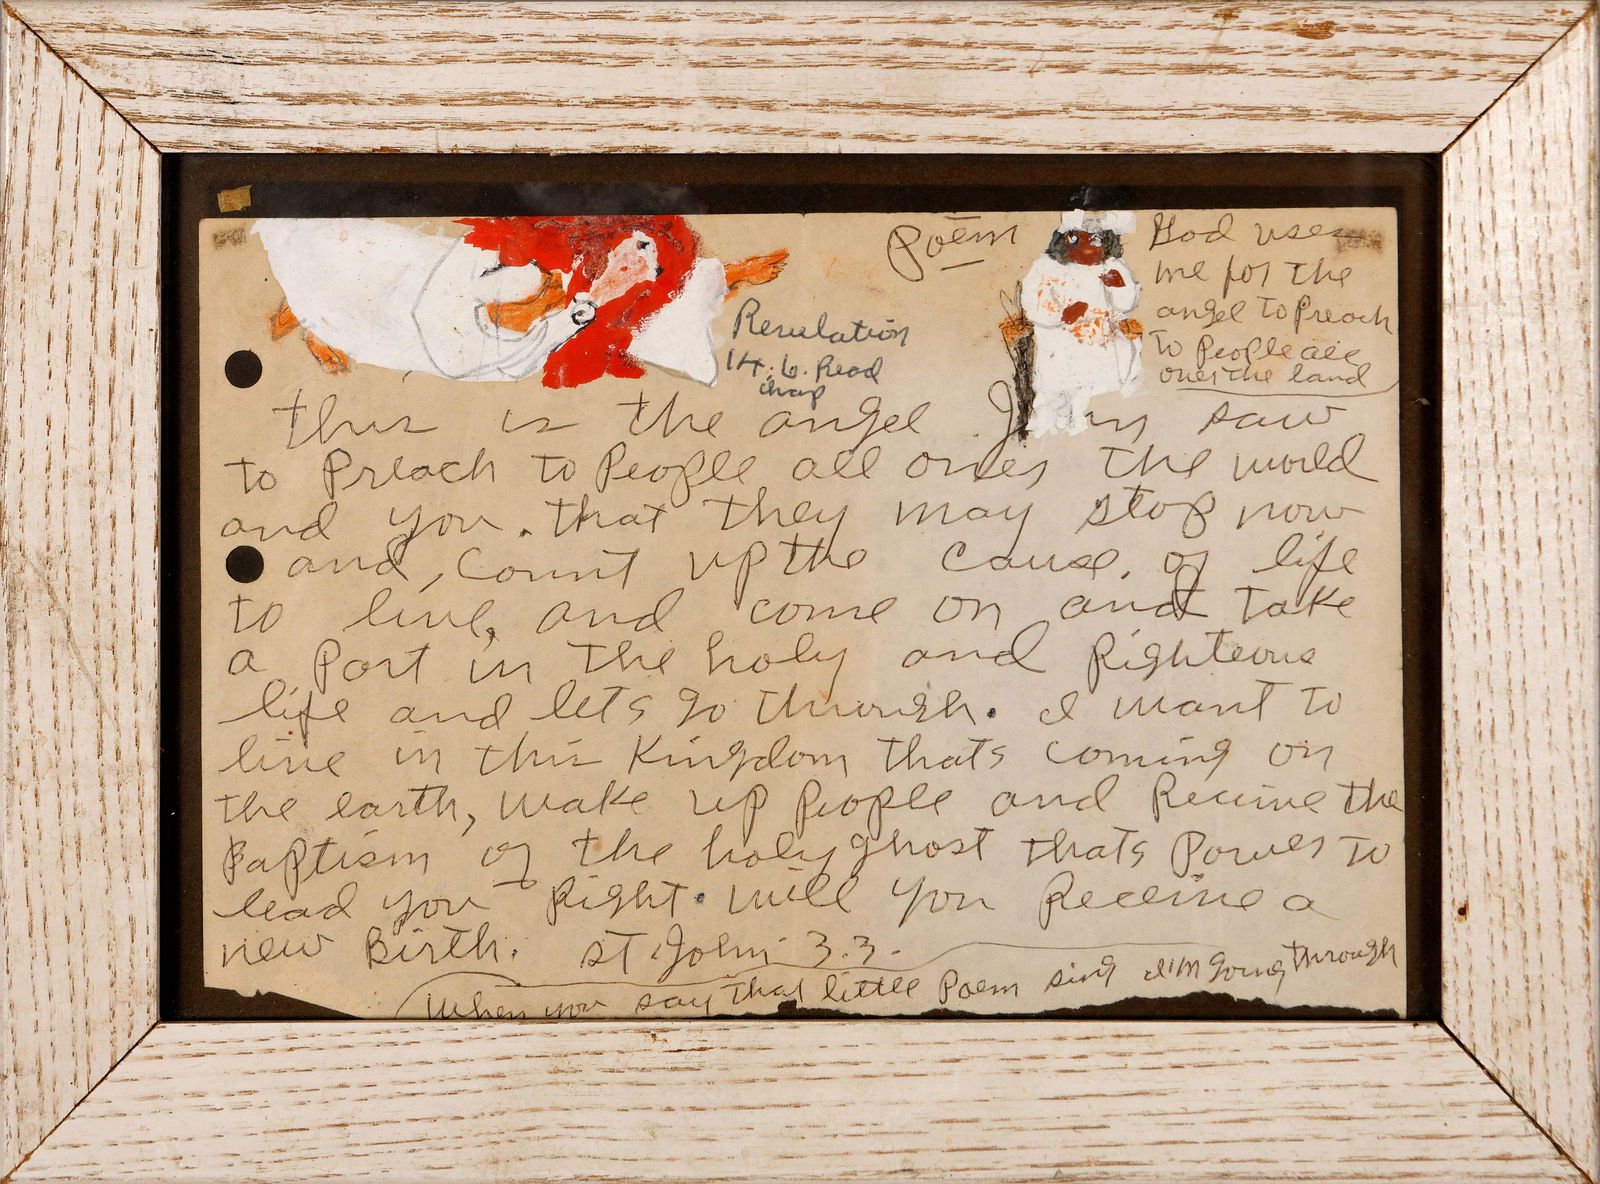 Poem
God uses
me for the
angel to Preach
to People all
over the land
Revelation
14.6. Read
chap
this is the angel John saw
to Preach to People all over the world
and you. that they may stop now
and, Count up the cause. of life
to live, and come on and take
a Part in the holy and Righteous
life and lets go through. I want to
live in this Kingdom thats coming on
the earth, wake up People and Receive the
Baptism of the holy ghost thats Power to
lead you Right. will you Receive a
new Birth. St. John 3.3.
When you say that little Poem sing I'm going through